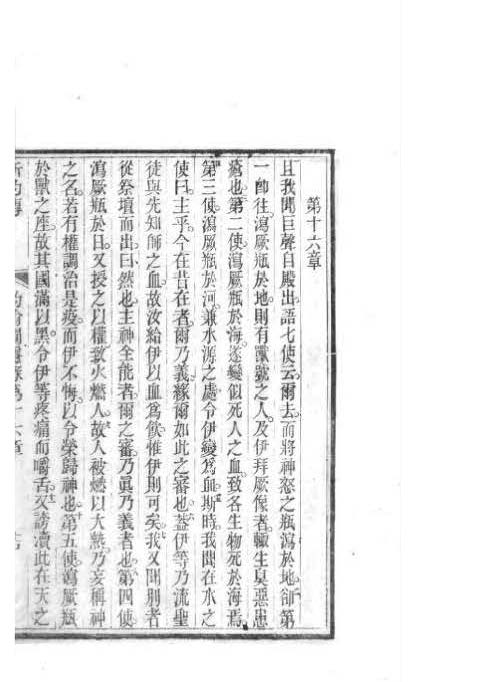 第十六章
且我聞巨聲自殿出語七使云爾去而將神怒之瓶瀉於地卻第
一帥往瀉厥瓶於地則有獸號之人及伊拜厥像者輒生臭惡患
瘡也第二使瀉厥瓶於海遂變似死人之血致各生物死於海焉
第三使瀉厥瓶於河兼水源之處令伊變為血斯時我聞在水之
使曰主乎今在昔在者爾乃義緣爾如此之審也葢伊等乃流聖
徒與先知師之血故汝給伊以血為飲惟伊則可矣我又聞別者
從祭壇而出曰然也主神全能者爾之審乃眞乃義者也第四使
瀉厥瓶於日又授之以權致火燃人故人被燃以大熱乃妄稱神
之名若有權調治是疫而伊不悔以分榮歸神也第五使瀉厥瓶
於獸之座故其國滿以黑令伊等疼痛而嚼舌又謗瀆此在天之